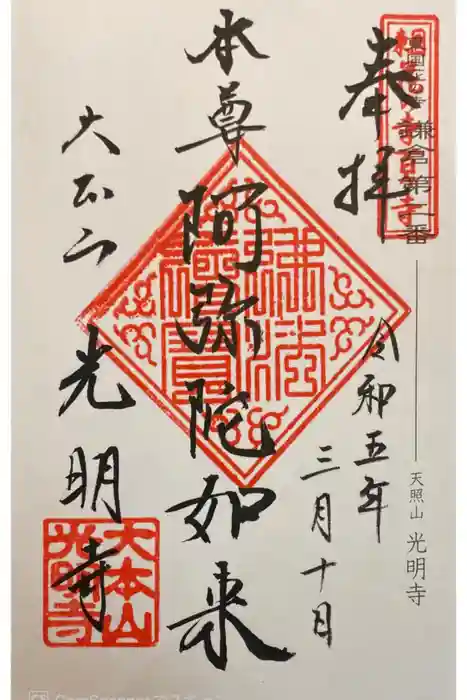 東国花の寺 鎌倉第二番
天照山 光明寺
奉拝
令和五年
三月十日
本尊 阿弥陀如来
大本山 光明寺
大本山
光明寺